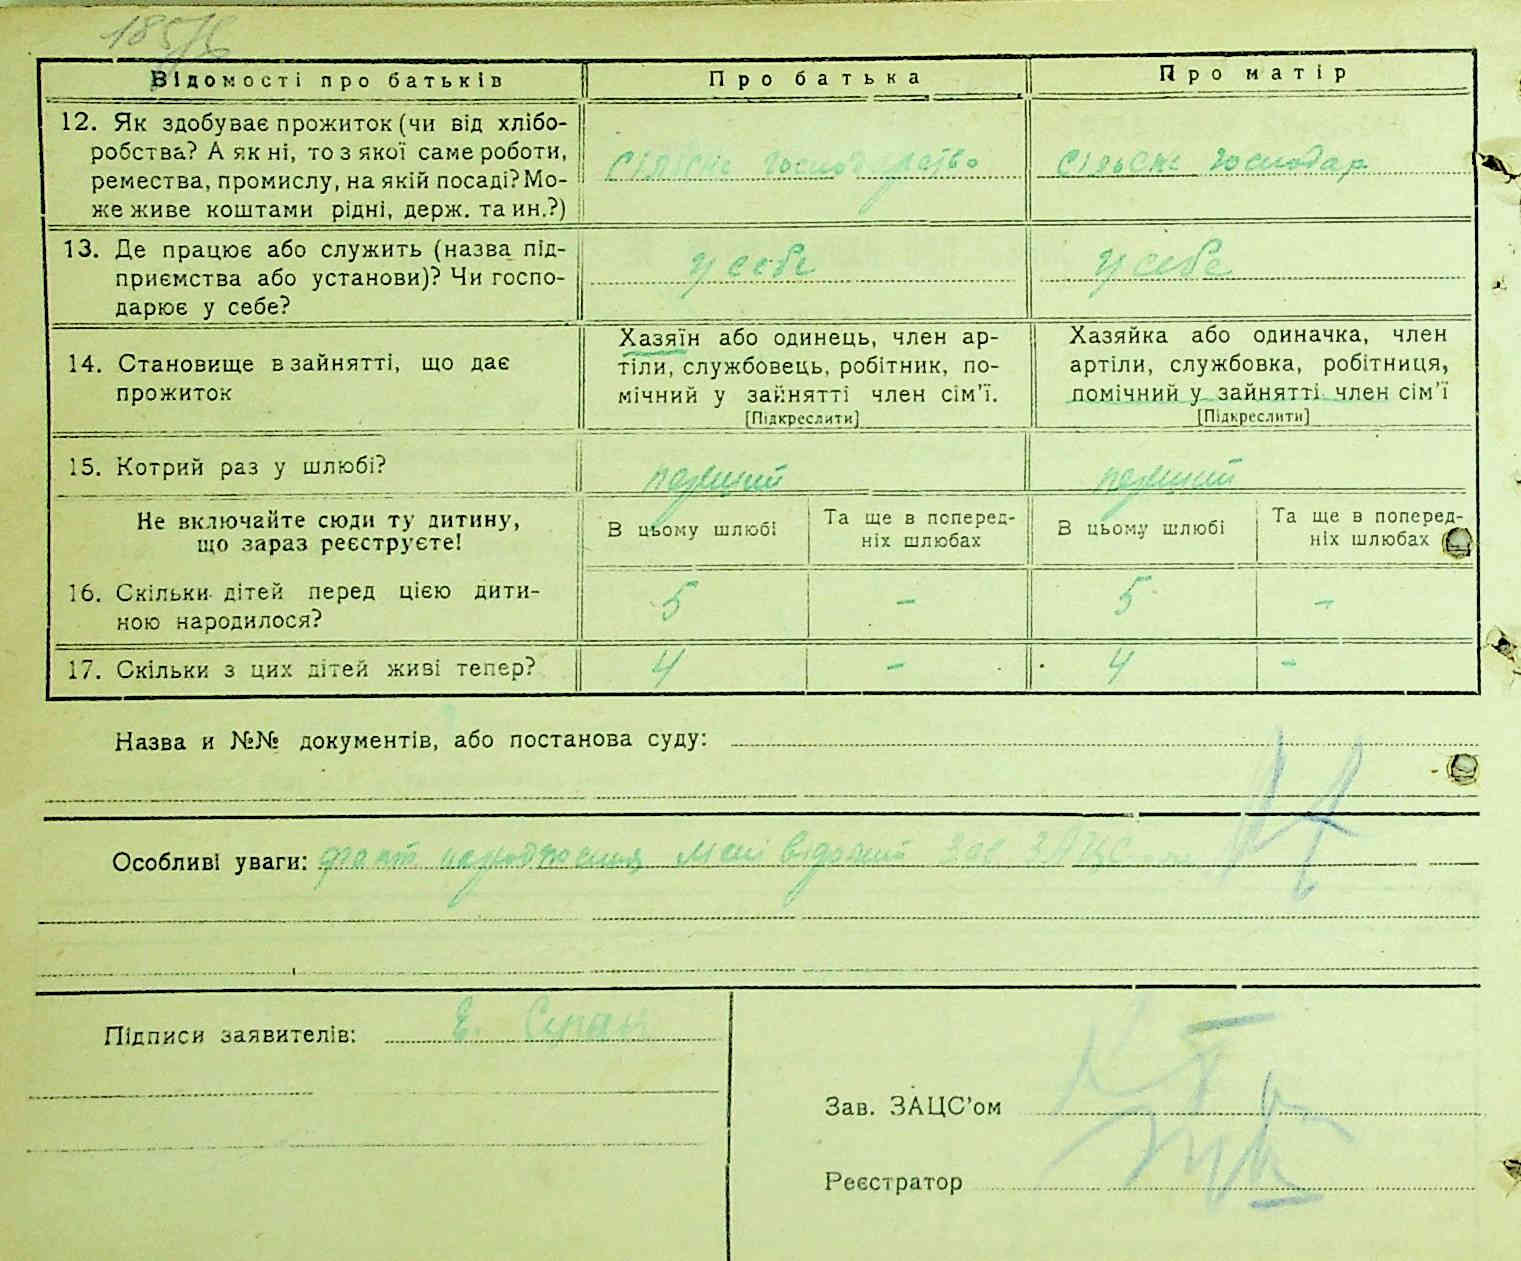 185/б
Відомості про батьків
Про батька
Про матір
12. Як здобуває прожиток (чи від хлібо-
робства? А як ні, то з якої саме роботи,
ремества, промислу, на якій посаді? Мо-
же живе коштами рідні, держ. та ин.?)
сільске господарство
сільске господар
13. Де працює або служить (назва під-
приємства або установи)? Чи госпо-
дарює у себе?
у себе
у себе
14. Становище в зайнятті, що дає
прожиток
Хазяїн або одинець, член ар-
тіли, службовець, робітник, по-
мічний у зайнятті член сім'ї.
[Підкреслити]
Хазяйка або одиначка, член
артіли, службовка, робітниця,
помічний у зайнятті член сім'ї
[Підкреслити]
15. Котрий раз у шлюбі?
первий
первий
Не включайте сюди ту дитину,
що зараз реєструєте!
В цьому шлюбі
Та ще в поперед-
ніх шлюбах
В цьому шлюбі
Та ще в поперед-
ніх шлюбах
16. Скільки дітей перед цією дити-
ною народилося?
5
-
5
-
17. Скільки з цих дітей живі тепер?
4
-
4
-
Назва и №№ документів, або постанова суду:
Особливі уваги: факт народження мені відомий Зав ЗАЦСом
Підписи заявителів:
Зав. ЗАЦС'ом
Реєстратор